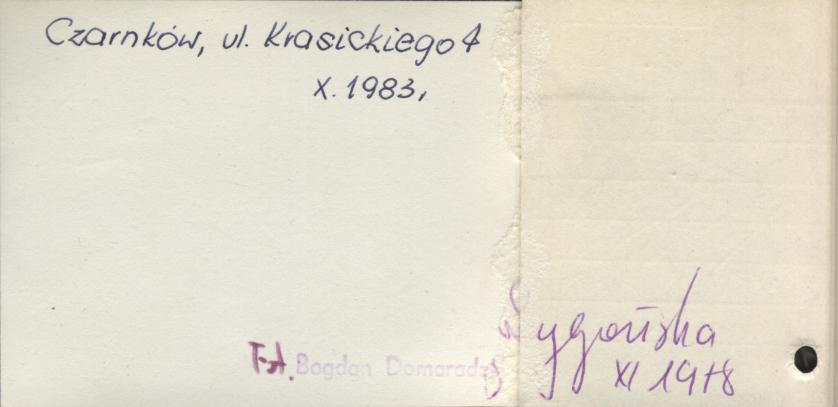 Czarnków, ul. Krasickiego 4
X. 1983,
Fot. Bogdan Domaradz
XI 1978